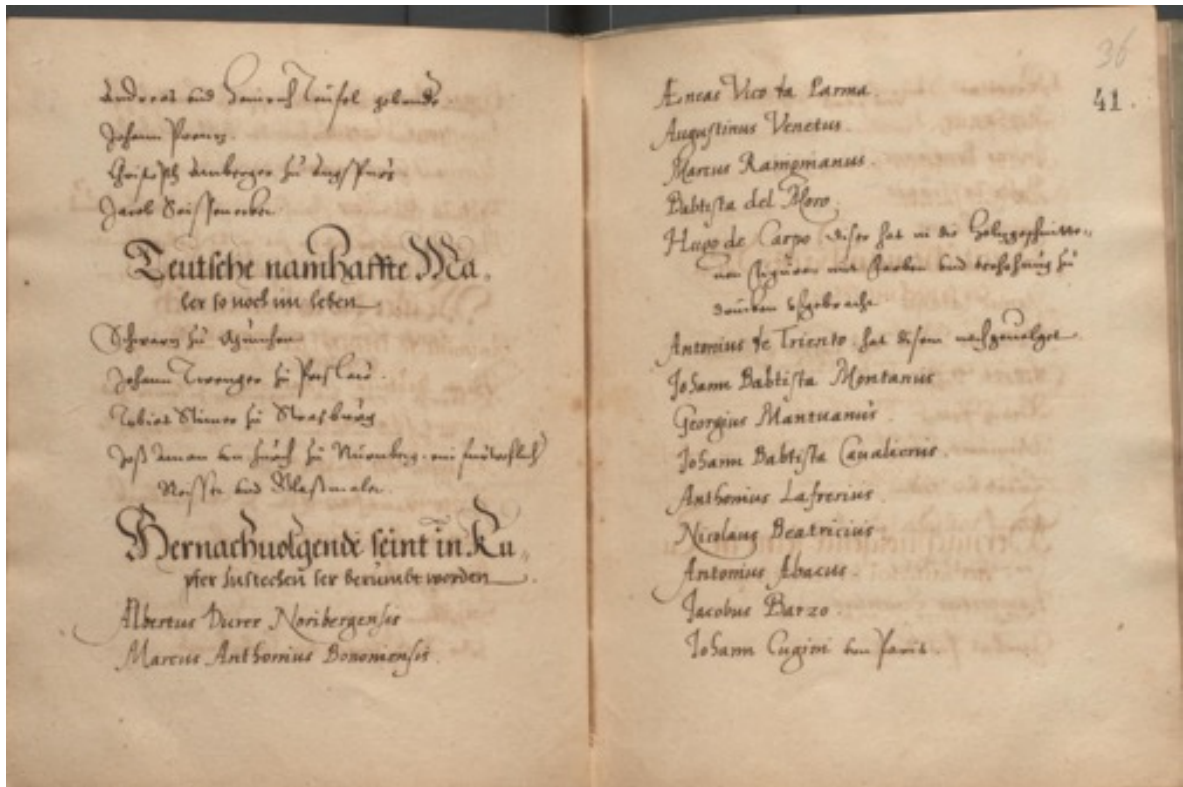 Andreas und Heinrich Teufel gebruder
Johann
Christoph Amberger zu Augspurg
Jacob Seissenecker
Teutsche namhaffte Ma-
ler so noch im leben
Schwartz zu München
Johann Twenger zu Preslaw.
Tobias Stimer zu Strasburg
Jost Aman von Zürch zu Nürmberg. ein fürtrefflich
Reisser und Glasmaler.
Hernachuolgende seint in Ku-
pfer zustechen ser berumbt worden
Albertus Durer Noribergensis
Marcus Anthonius Bononiensis.
36
41.
Æneas Vico da Parma.
Augustinus Venetus.
Marcus Rauignanus.
Babtista del Moro.
Hugo de Carpo diser hat die Holtzgeschnitte-
nen figuren mit farben und erhohung zu
drucken
Antonius de Triento hat disem nachgeuolget.
Johann Babtista Montanus
Georgius Mantuanus.
Johann Babtista Caualierus.
Anthonius Lafrerius.
Nicolaus Beatricius
Antonius Abacus
Jacobus Barzo.
Johann Cugini von Paris.